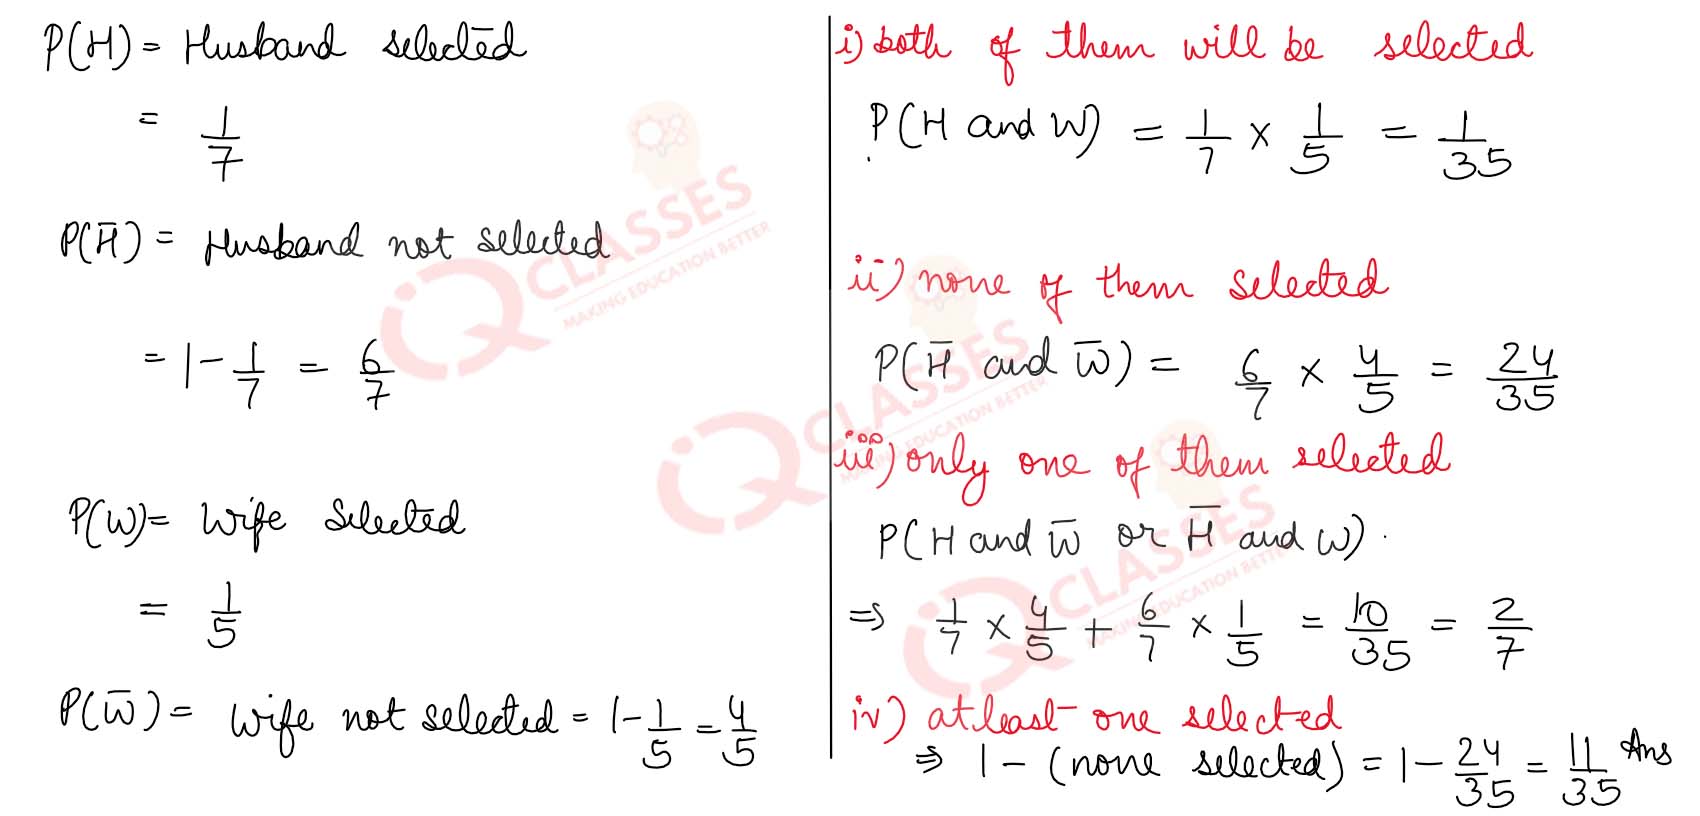 P(H) = Husband selected
= 1/7
P(H̅) = Husband not selected
= 1 - 1/7 = 6/7
P(W) = Wife Selected
= 1/5
P(W̅) = Wife not selected = 1 - 1/5 = 4/5
i) both of them will be selected
P(H and W) = 1/7 × 1/5 = 1/35
ii) none of them selected
P(H̅ and W̅) = 6/7 × 4/5 = 24/35
iii) only one of them selected
P(H and W̅ or H̅ and W).
⇒ 1/7 × 4/5 + 6/7 × 1/5 = 10/35 = 2/7
iv) atleast one selected
⇒ 1 - (none selected) = 1 - 24/35 = 11/35 Ans
iQ CLASSES
MAKING EDUCATION BETTER
iQ CLASSES
MAKING EDUCATION BETTER
iQ CLASSES
MAKING EDUCATION BETTER